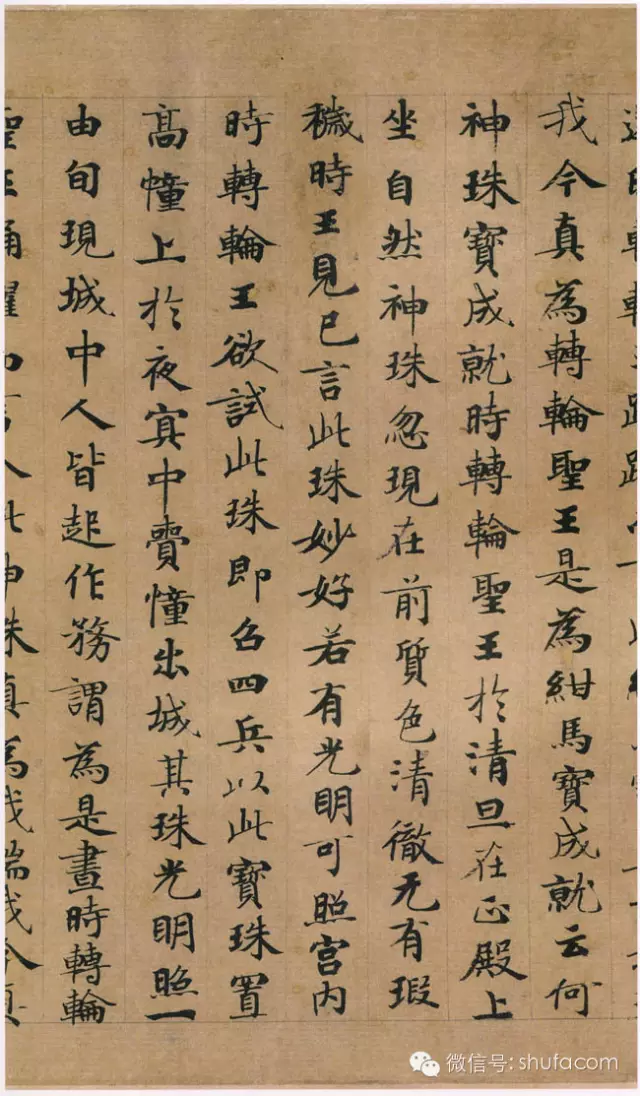 我今真為轉輪聖王是為紺馬寶成就云何
神珠寶成就時轉輪聖王於清旦在正殿上
坐自然神珠忽現在前質色清徹无有瑕
穢時王見已言此珠妙好若有光明可照宮内
時轉輪王欲試此珠即召四兵以此寶珠置
高幢上於夜冥中賷幢出城其珠光明照一
由旬現城中人皆起作務謂為是晝時轉輪
聖王踊躍而言今此神珠真為我瑞我今真
微信号: shufacom